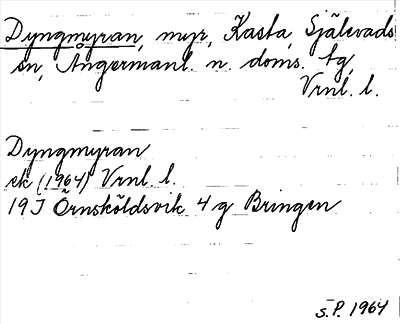 Dyngmyran, myr, Kasta, Själevads
sn, Ångermanl. n. doms. tg,
Vrnl. l.
Dyngmyran
ek (1964) Vrnl. l.
19J Örnsköldsvik 4 g Bringen
S.P. 1964